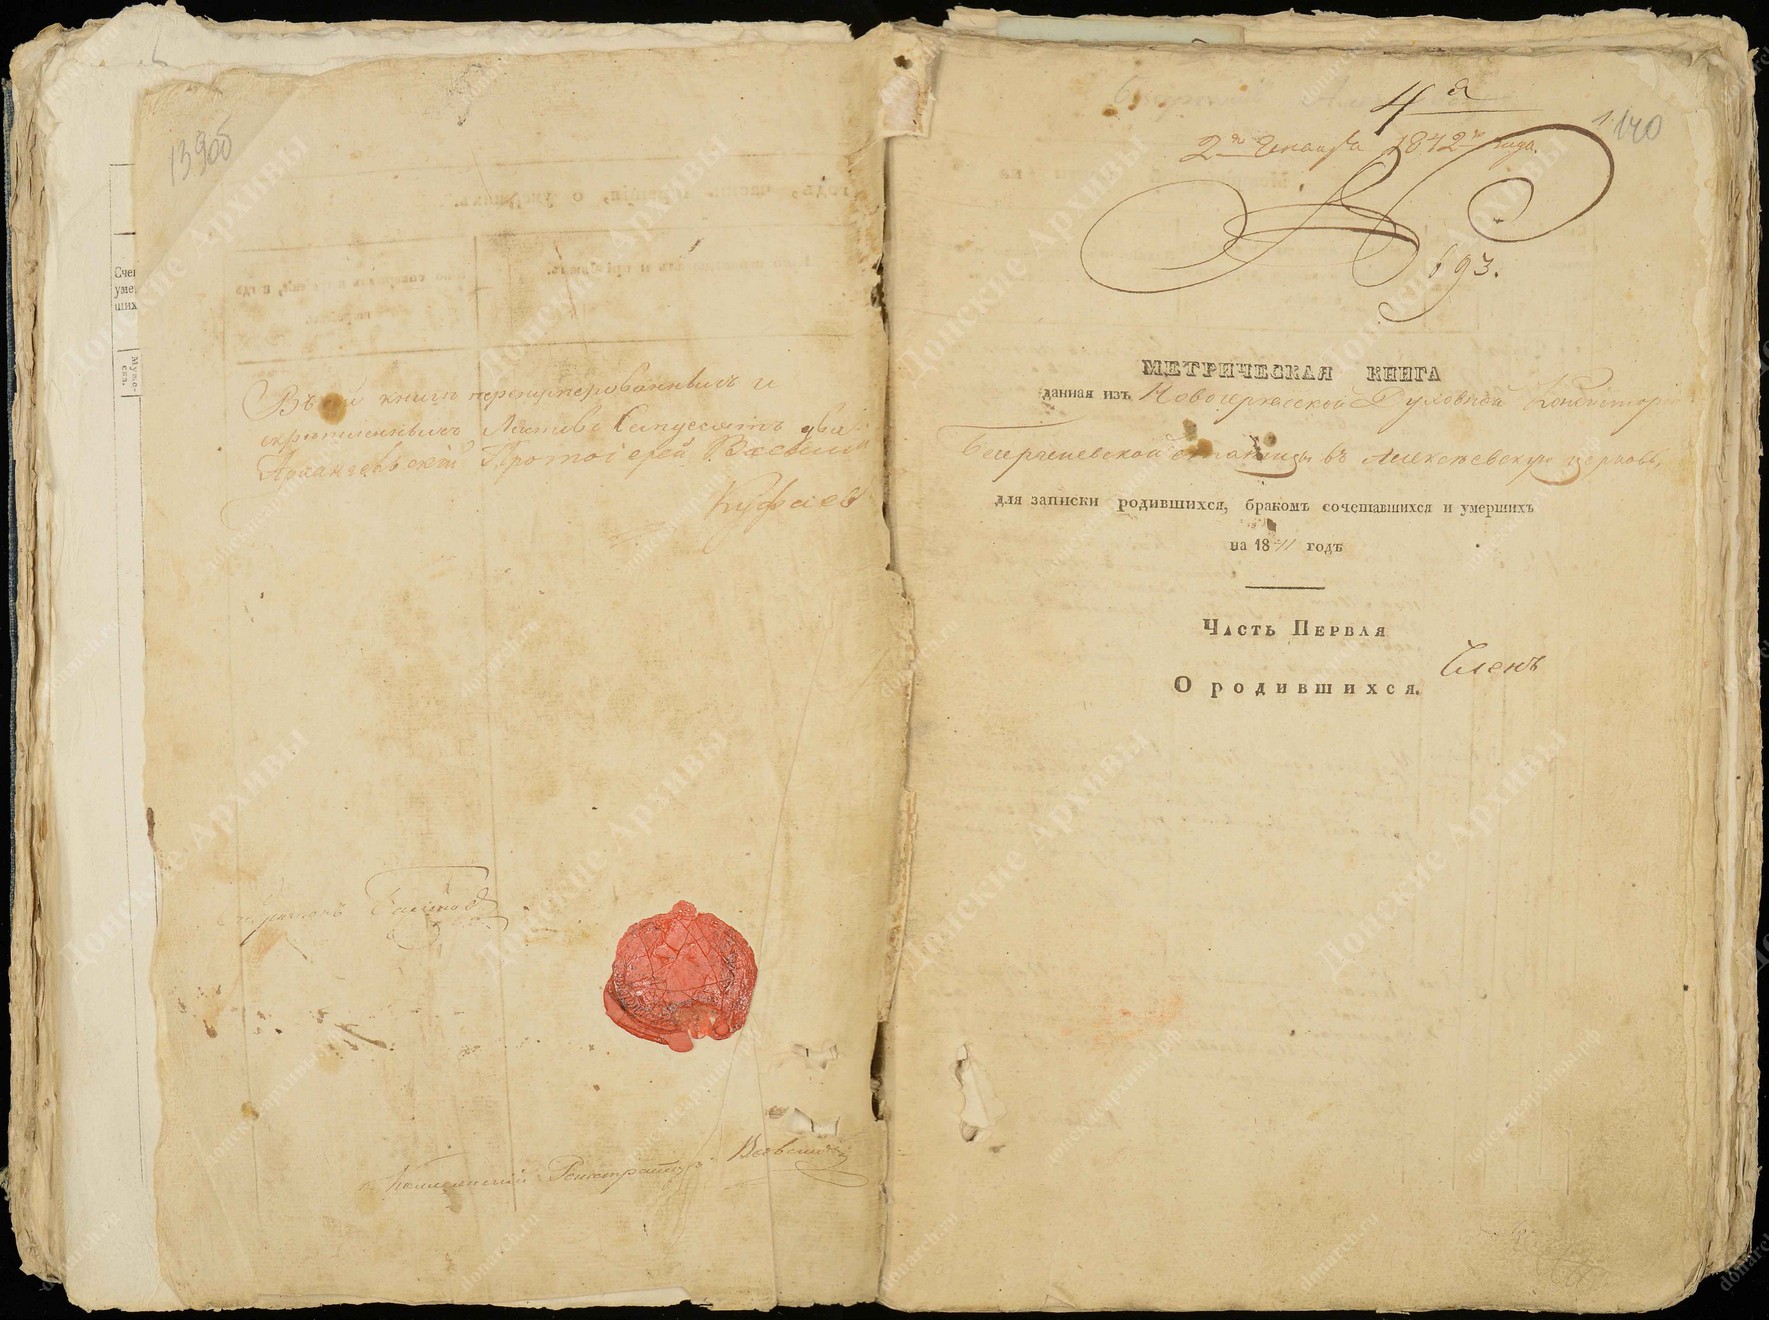 13905
Счет
умер
ших
Муж-
еск.
Въ сей книги перенумерованныхъ и
скрепленныхъ Листовъ семдесятъ два
Архангельскій Протоіерей Василій
Куфаев
Секретарь
Коллежскій Регистраторъ
4я
1. 140
2го Генваря 1842го года.
693.
МЕТРИЧЕСКАЯ КНИГА
данная изъ Новочеркасской Духовной Консисторіи
станицы въ Алексеевскую церковь,
для записки родившихся, бракомъ сочетавшихся и умершихъ
на 1841 годъ
Часть Первая
Членъ
О родившихся.
Донские Архивы
donarch.ru
донскиеархивы.рф